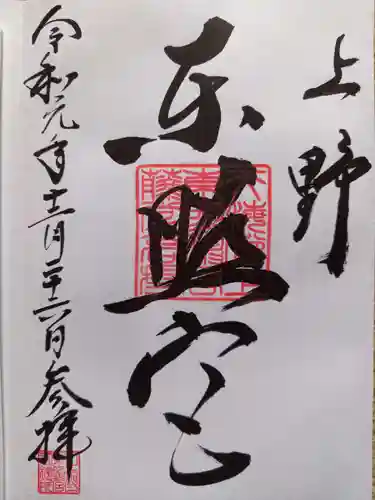 上野
東照宮
令和元年十二月二十六日参拝